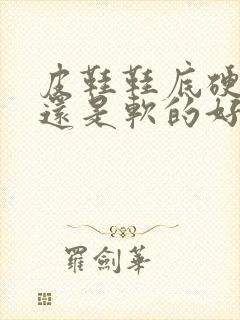 皮鞋鞋底硬
還是軟的好
羅劍華